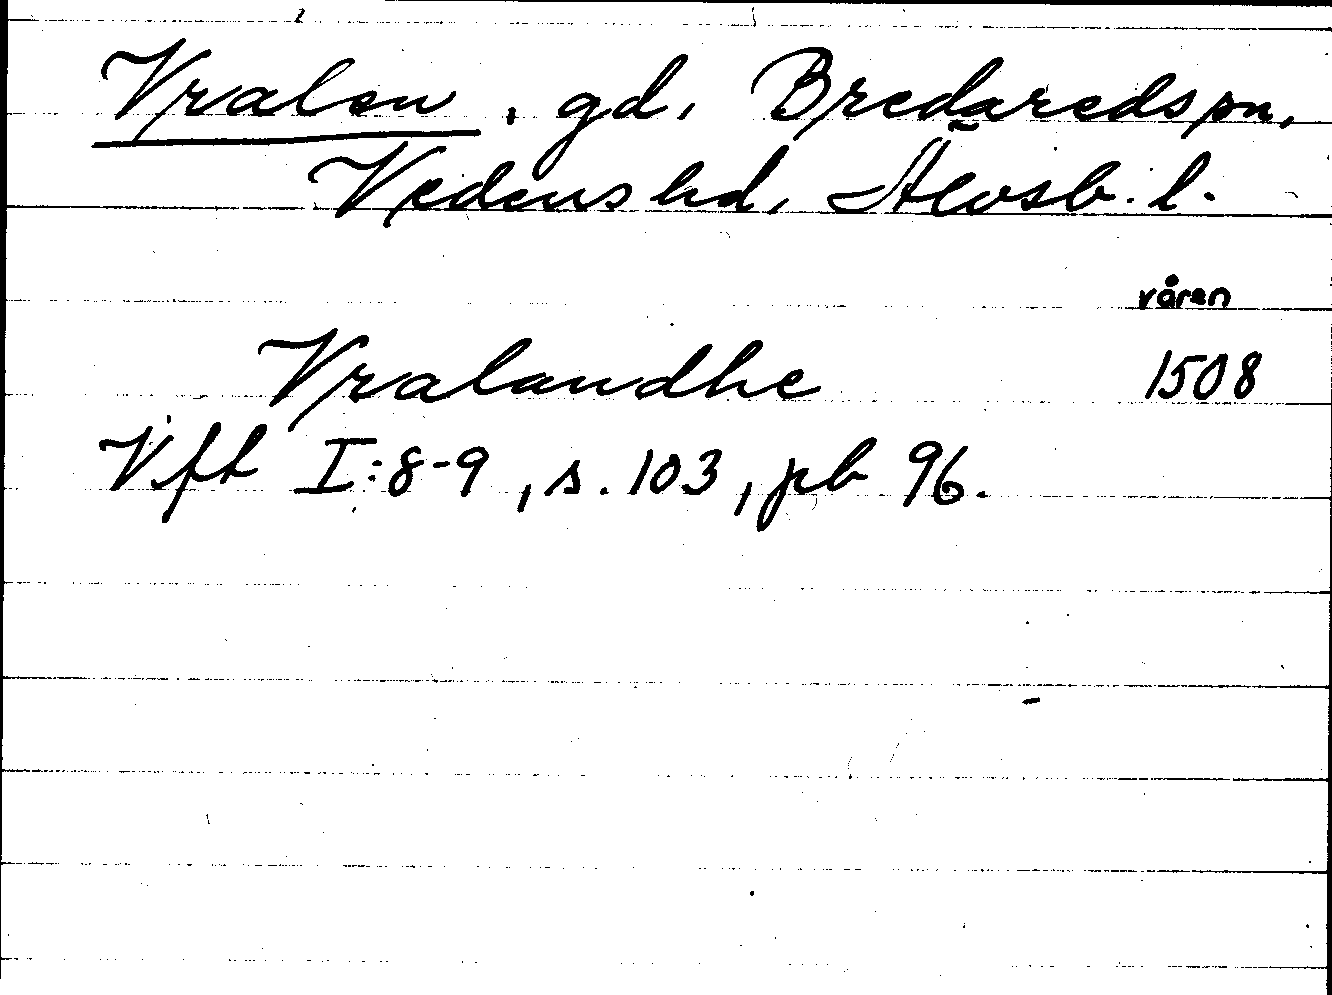 Vralen, gd, Bredareds sn,
Vedens hd, Älvsb. l.
våren
Vralandhe 1508
Vft I:8-9, s. 103, pb 96.